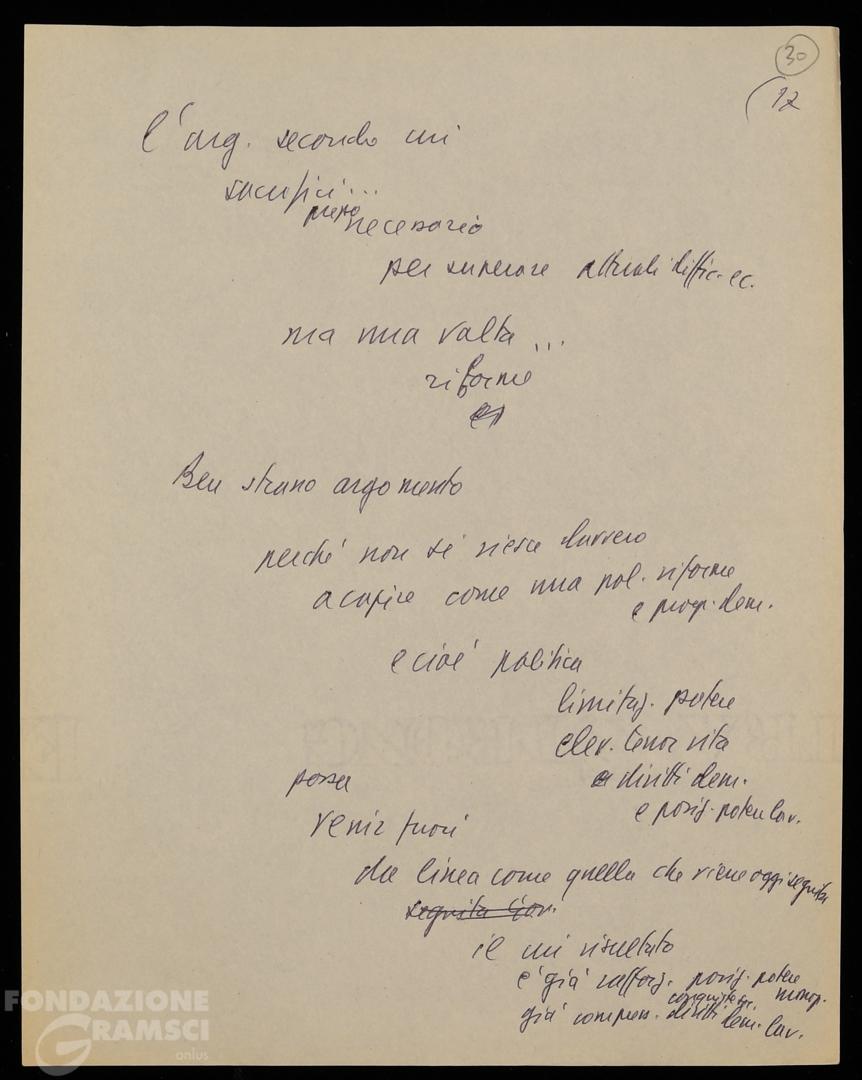 30
12
l'arg. secondo cui
sacrifici...
necessario
per superare attuali diffic. ec.
ma una volta ...
riforme
Ben strano argomento
perché non si riesce davvero
a capire come una pol. riforme
e prog. dem.
e cioè politica
limitaz. potere
elev. tenor vita
e diritti dem.
e posiz. potere lav.
possa
venir fuori
da linea come quella che viene oggi seguita
seguita Gov.
il cui risultato
è già rafforz. posiz. potere
monop.
già compress. diritti dem. lav.
FONDAZIONE
GRAMSCI
onlus